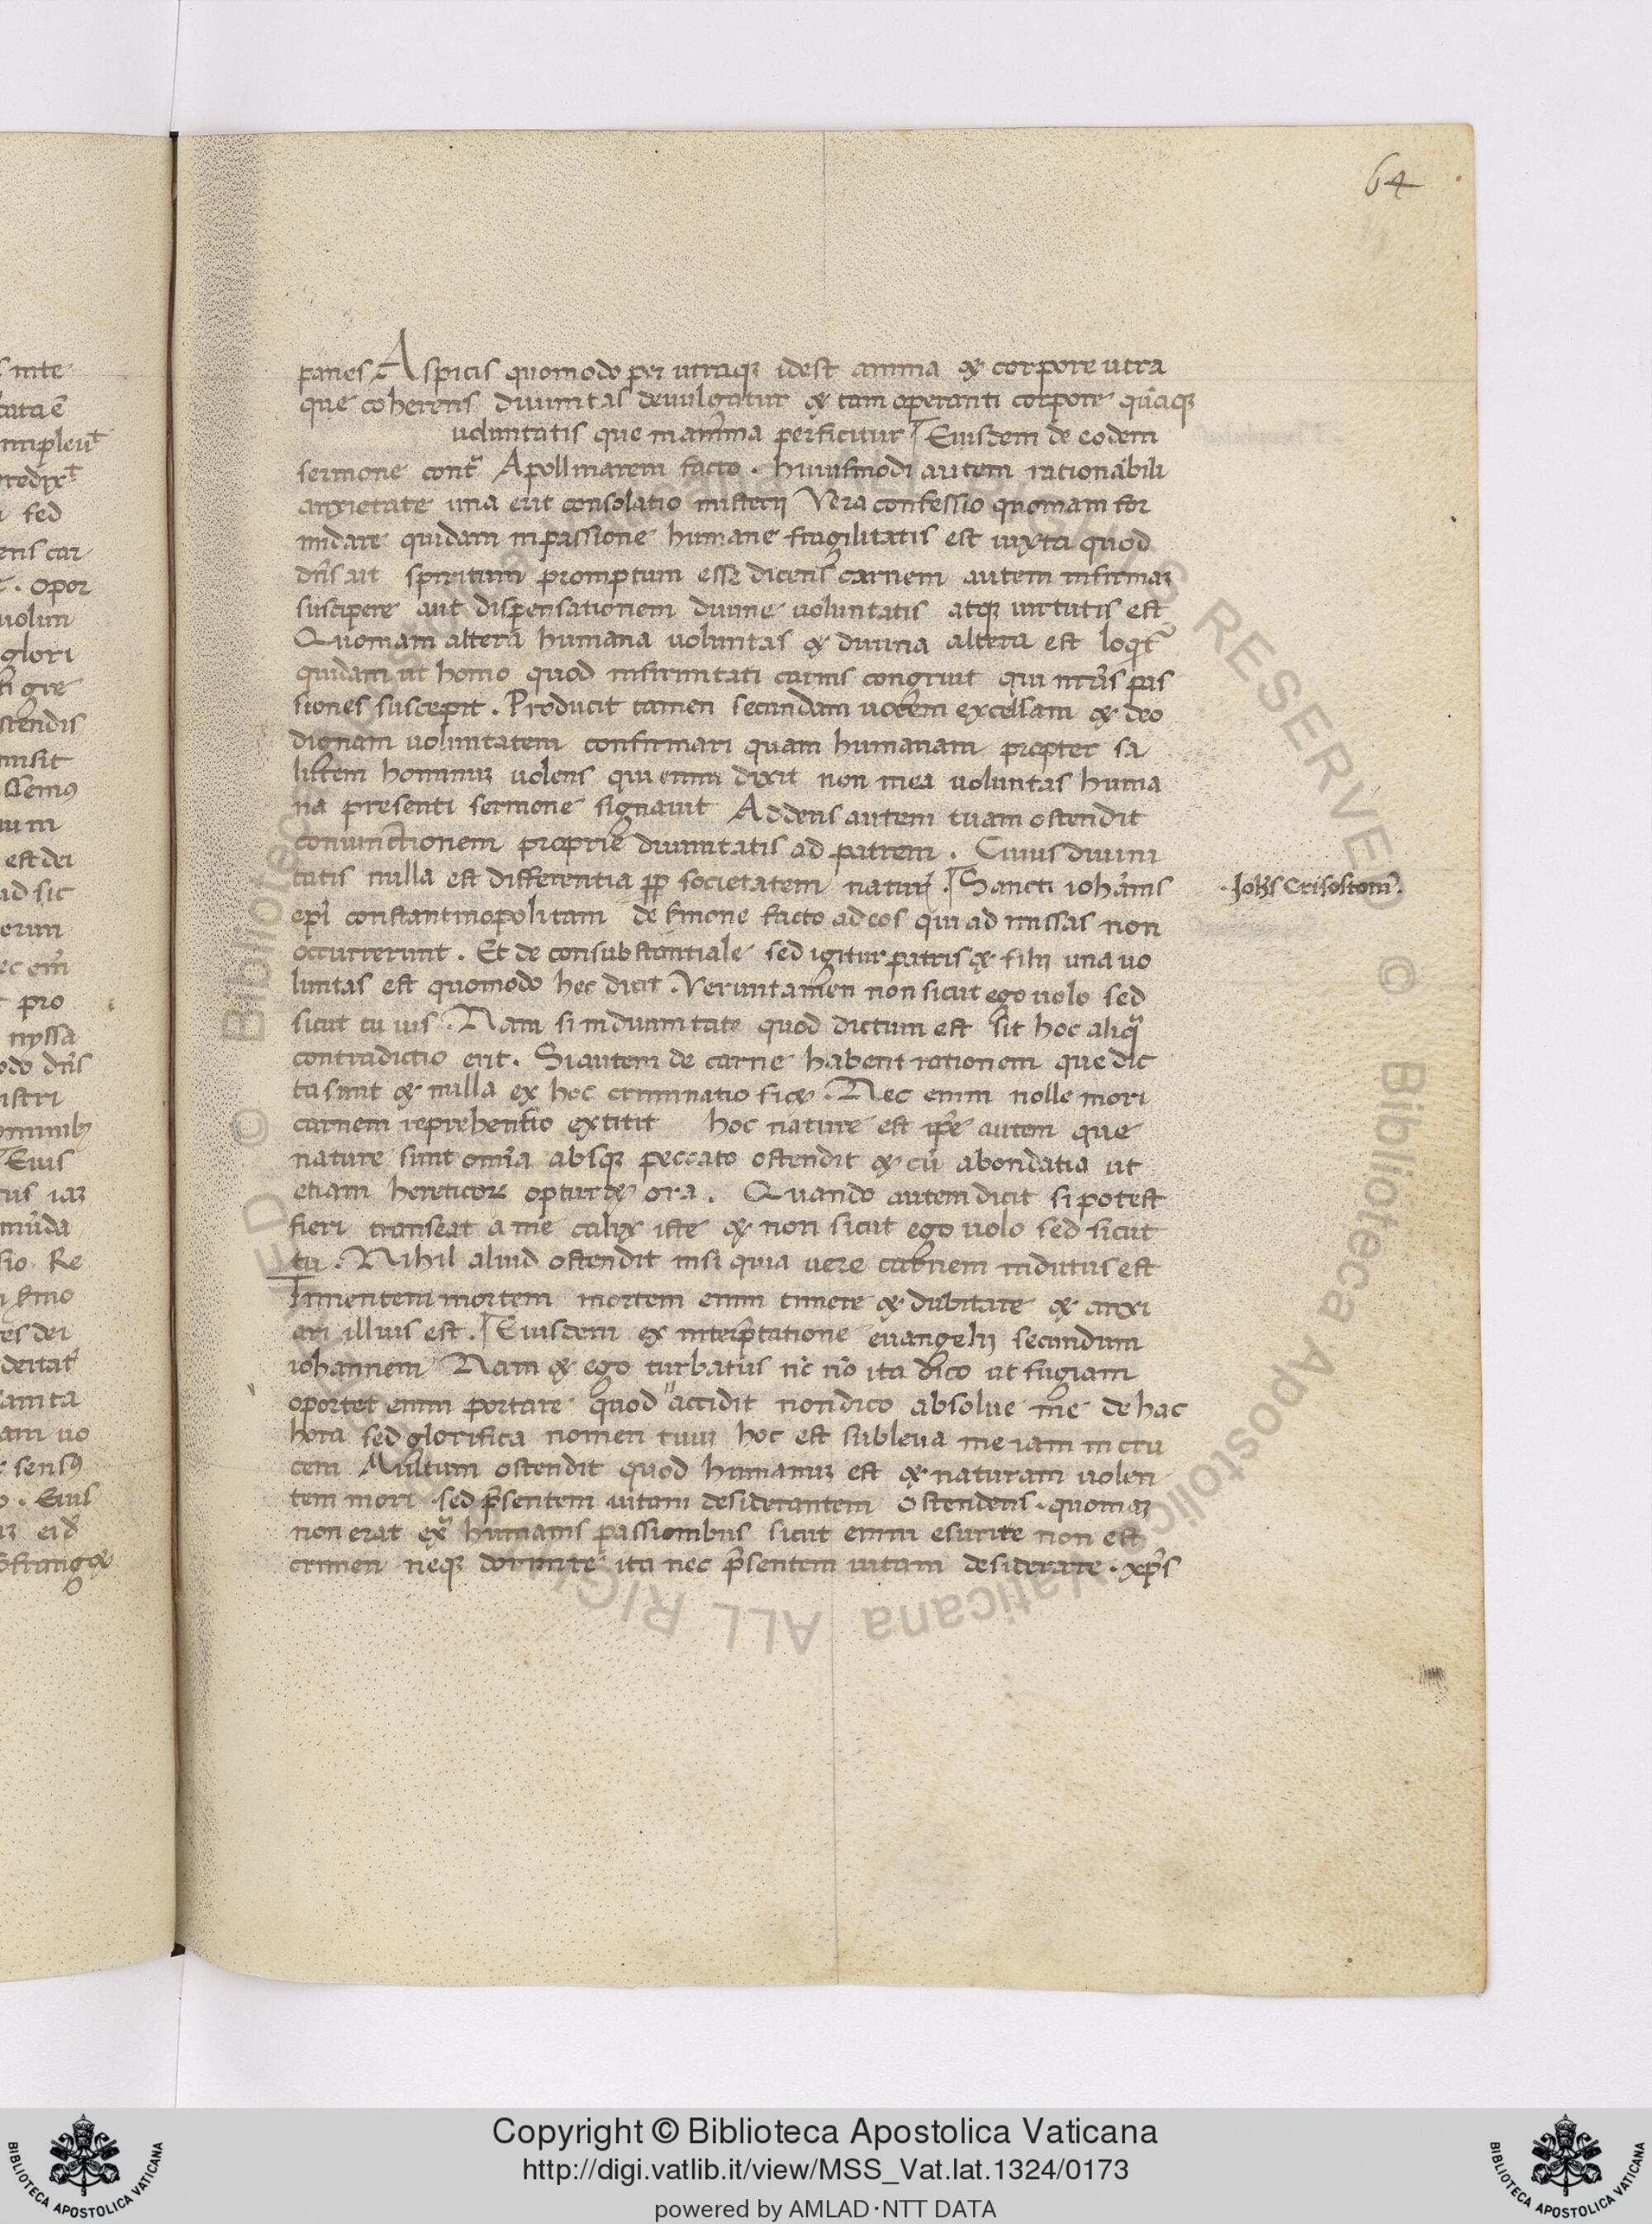 64
panes Aspicis quomodo per utraqꝫ idest anima & corpore utra
que coherens diuinitas deuulgatur & tam operanti corpore quāqꝫ
uoluntatis que in anima perficitur Eiusdem de eodem
sermone contᵃ Apollinarem facto . huiusmodi autem rationabili
anxietate una erit consolatio misterij Vera confessio quoniam for
midare quidam in passione humane fragilitatis est iuxta quod
dn̄s ait spiritum promptum esse dicens carnem autem infirmaꝫ
suscipere aut dispensationem diuine uoluntatis atqꝫ uirtutis est
Quoniam altera humana uoluntas & diuina altera est loqͥtͬ
quidam ut homo quod infirmitati carnis congruit qui nr̄is pas
siones suscepit . Producit tamen secundam uocem excelsam & deo
dignam uoluntatem confirmari quam humanam propter sa
lutem hominuꝫ uolens qui enim dixit non mea uoluntas huma
na presenti sermone signauit Addens autem tuam ostendit
coniunctionem proprie diuinitatis ad patrem . Cuius diuini
tatis nulla est differentia ꝓp societatem natur . Sancti ioh̄anis
ep̄i constantinopolitani de s̄mone facto ad eos qui ad missas non
occurrerunt . Et de consubstantiale sed igitur patris & filij una uo
luntas est quomodo hec dicit . Veruntamen non sicut ego uolo sed
sicut tu uis . Nam si in diuinitate quod dictum est sit hoc aliqᵃ
contradictio erit . Si autem de carne habent rationem que dic
ta sunt & nulla ex hoc criminatio fi& . Nec enim nolle mori
carnem reprehensio extitit hoc nature est ip̄e autem que
nature sunt omīa absqꝫ peccato ostendit & cū abondatia ut
etiam hereticoꝝ optur& ora . Quando autem dicit si potest
fieri transeat a me calix iste & non sicut ego uolo sed sicut
tu . Nihil aliud ostendit nisi quia uere carnem indutus est
Timentem mortem mortem enim timere & dubitare & anxi
ari illius est . Eiusdem ex interp̄tatione euangelij secundum
iohannem Nam & ego turbatus nc̄ nō ita dico ut fugiam
oportet enim portare quod accidit non dico absolue me de hac
hora sed glorifica nomen tuuꝫ hoc est subleua me iam in cru
cem Multum ostendit quod humanuꝫ est & naturam uolen
tem mori sed p̄sentem uitam desiderantem ostendens . quoniaꝫ
non erat exᵃ humanis passionibus sicut enim esurire non est
crimen neqꝫ dormire ita nec p̄sentem uitam desiderare . xp̄s
. Joh̄s Crisostom᷒ .
Copyright © Biblioteca Apostolica Vaticana
http://digi.vatlib.it/view/MSS_Vat.lat.1324/0173
powered by AMLAD·NTT DATA
BIBLIOTECA APOSTOLICA VATICANA
BIBLIOTECA APOSTOLICA VATICANA